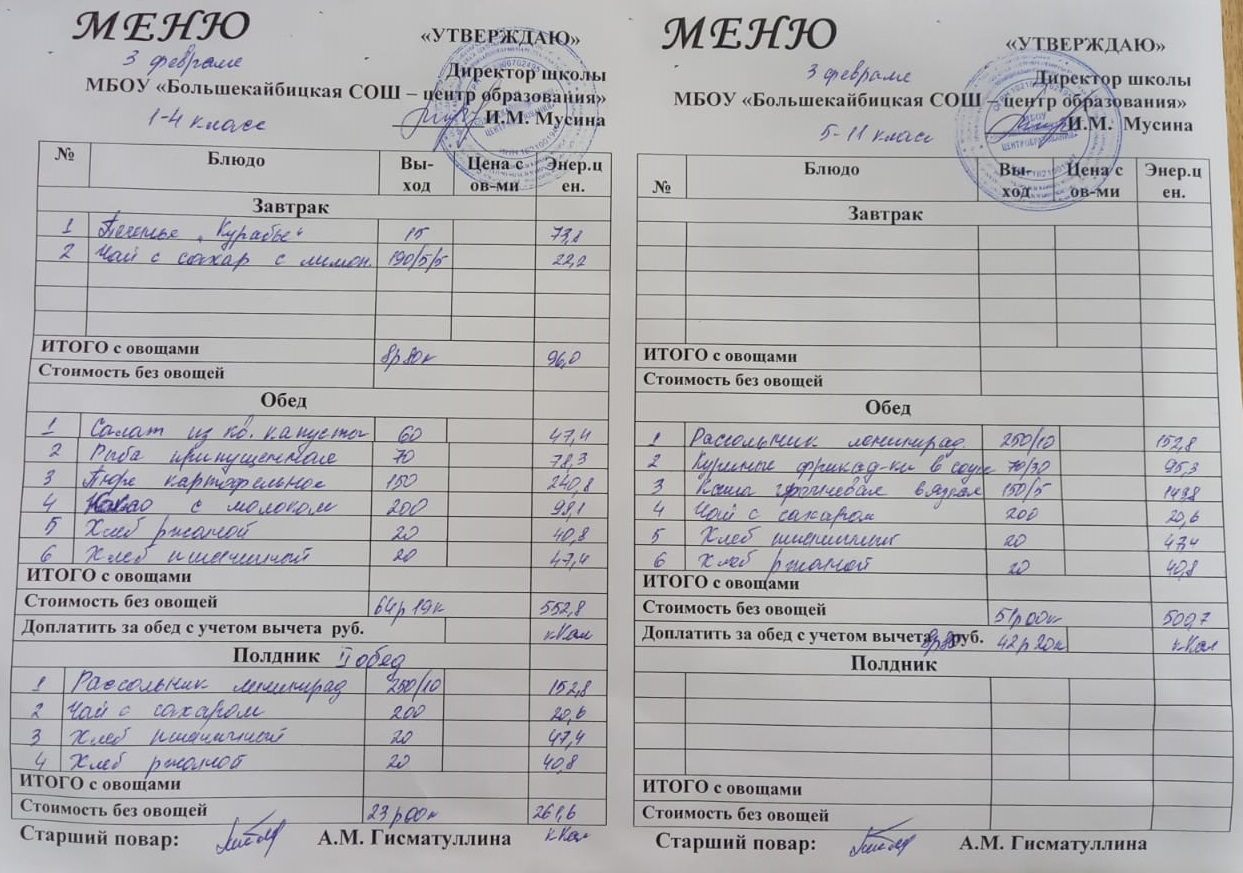 МЕНЮ
«УТВЕРЖДАЮ»
3 февраля
Директор школы
МБОУ «Большекайбицкая СОШ – центр образования»
1-4 класс
И.М. Мусина
№ Блюдо Вы-ход Цена с ов-ми Энер.ц ен.
Завтрак
1 Печенье „Курабье“ 15 73,8
2 Чай с сахар с лимон. 190/5/5 22,2
ИТОГО с овощами 8р80к 96,0
Стоимость без овощей
Обед
1 Салат из кв. капусты 60 47,4
2 Рыба припущенная 70 78,3
3 Пюре картофельное 150 240,8
4 Какао с молоком 200 98,1
5 Хлеб ржаной 20 40,8
6 Хлеб пшеничный 20 47,4
ИТОГО с овощами
Стоимость без овощей 64р19к 552,8
Доплатить за обед с учетом вычета руб. кКал
Полдник II обед
1 Рассольник ленинград 250/10 152,8
2 Чай с сахаром 200 20,6
3 Хлеб пшеничный 20 47,4
4 Хлеб ржаной 20 40,8
ИТОГО с овощами
Стоимость без овощей 23р00к 261,6
Старший повар: А.М. Гисматуллина кКал
МЕНЮ
«УТВЕРЖДАЮ»
3 февраля
Директор школы
МБОУ «Большекайбицкая СОШ – центр образования»
5-11 класс
И.М. Мусина
№ Блюдо Вы-ход Цена с ов-ми Энер.ц ен.
Завтрак
ИТОГО с овощами
Стоимость без овощей
Обед
1 Рассольник ленинград. 250/10 152,8
2 Куриные фрикад-ки в соусе 70/30 95,3
3 Каша гречневая вязкая 150/5 143,8
4 Чай с сахаром 200 20,6
5 Хлеб пшеничный 20 47,4
6 Хлеб ржаной 20 40,8
ИТОГО с овощами
Стоимость без овощей 51р00к 500,7
Доплатить за обед с учетом вычета 8р80 руб. 42р20к кКал
Полдник
ИТОГО с овощами
Стоимость без овощей
Старший повар: А.М. Гисматуллина